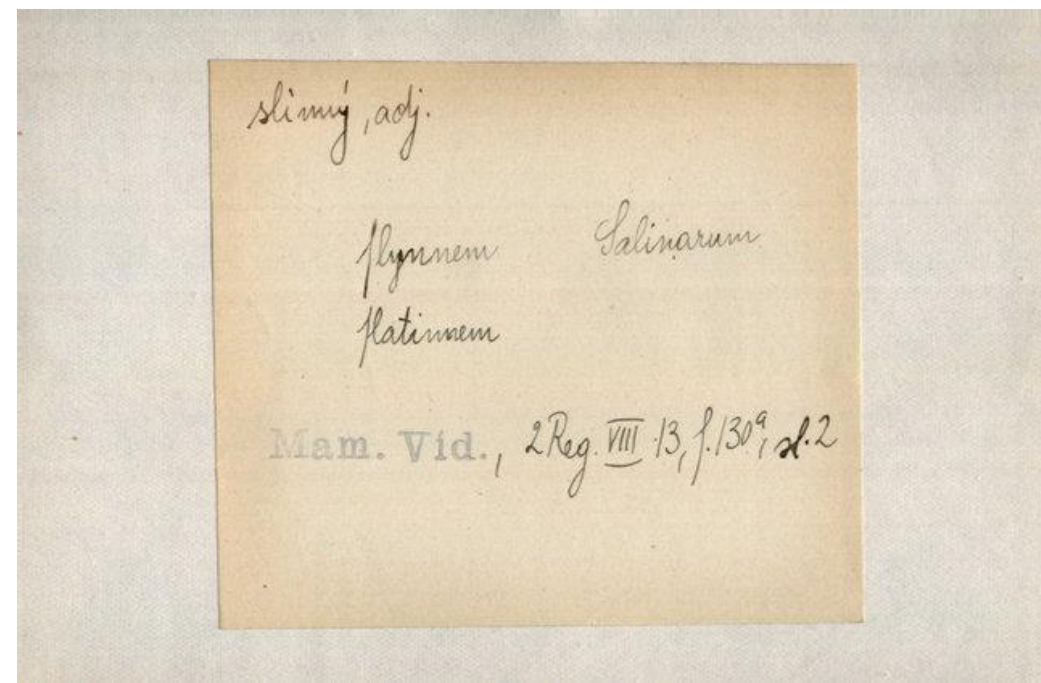 slinný, adj.
ſlynnem Salinarum
ſlatinnem
Mam. Víd., 2 Reg. VIII. 13, f. 130ᵃ, sl. 2